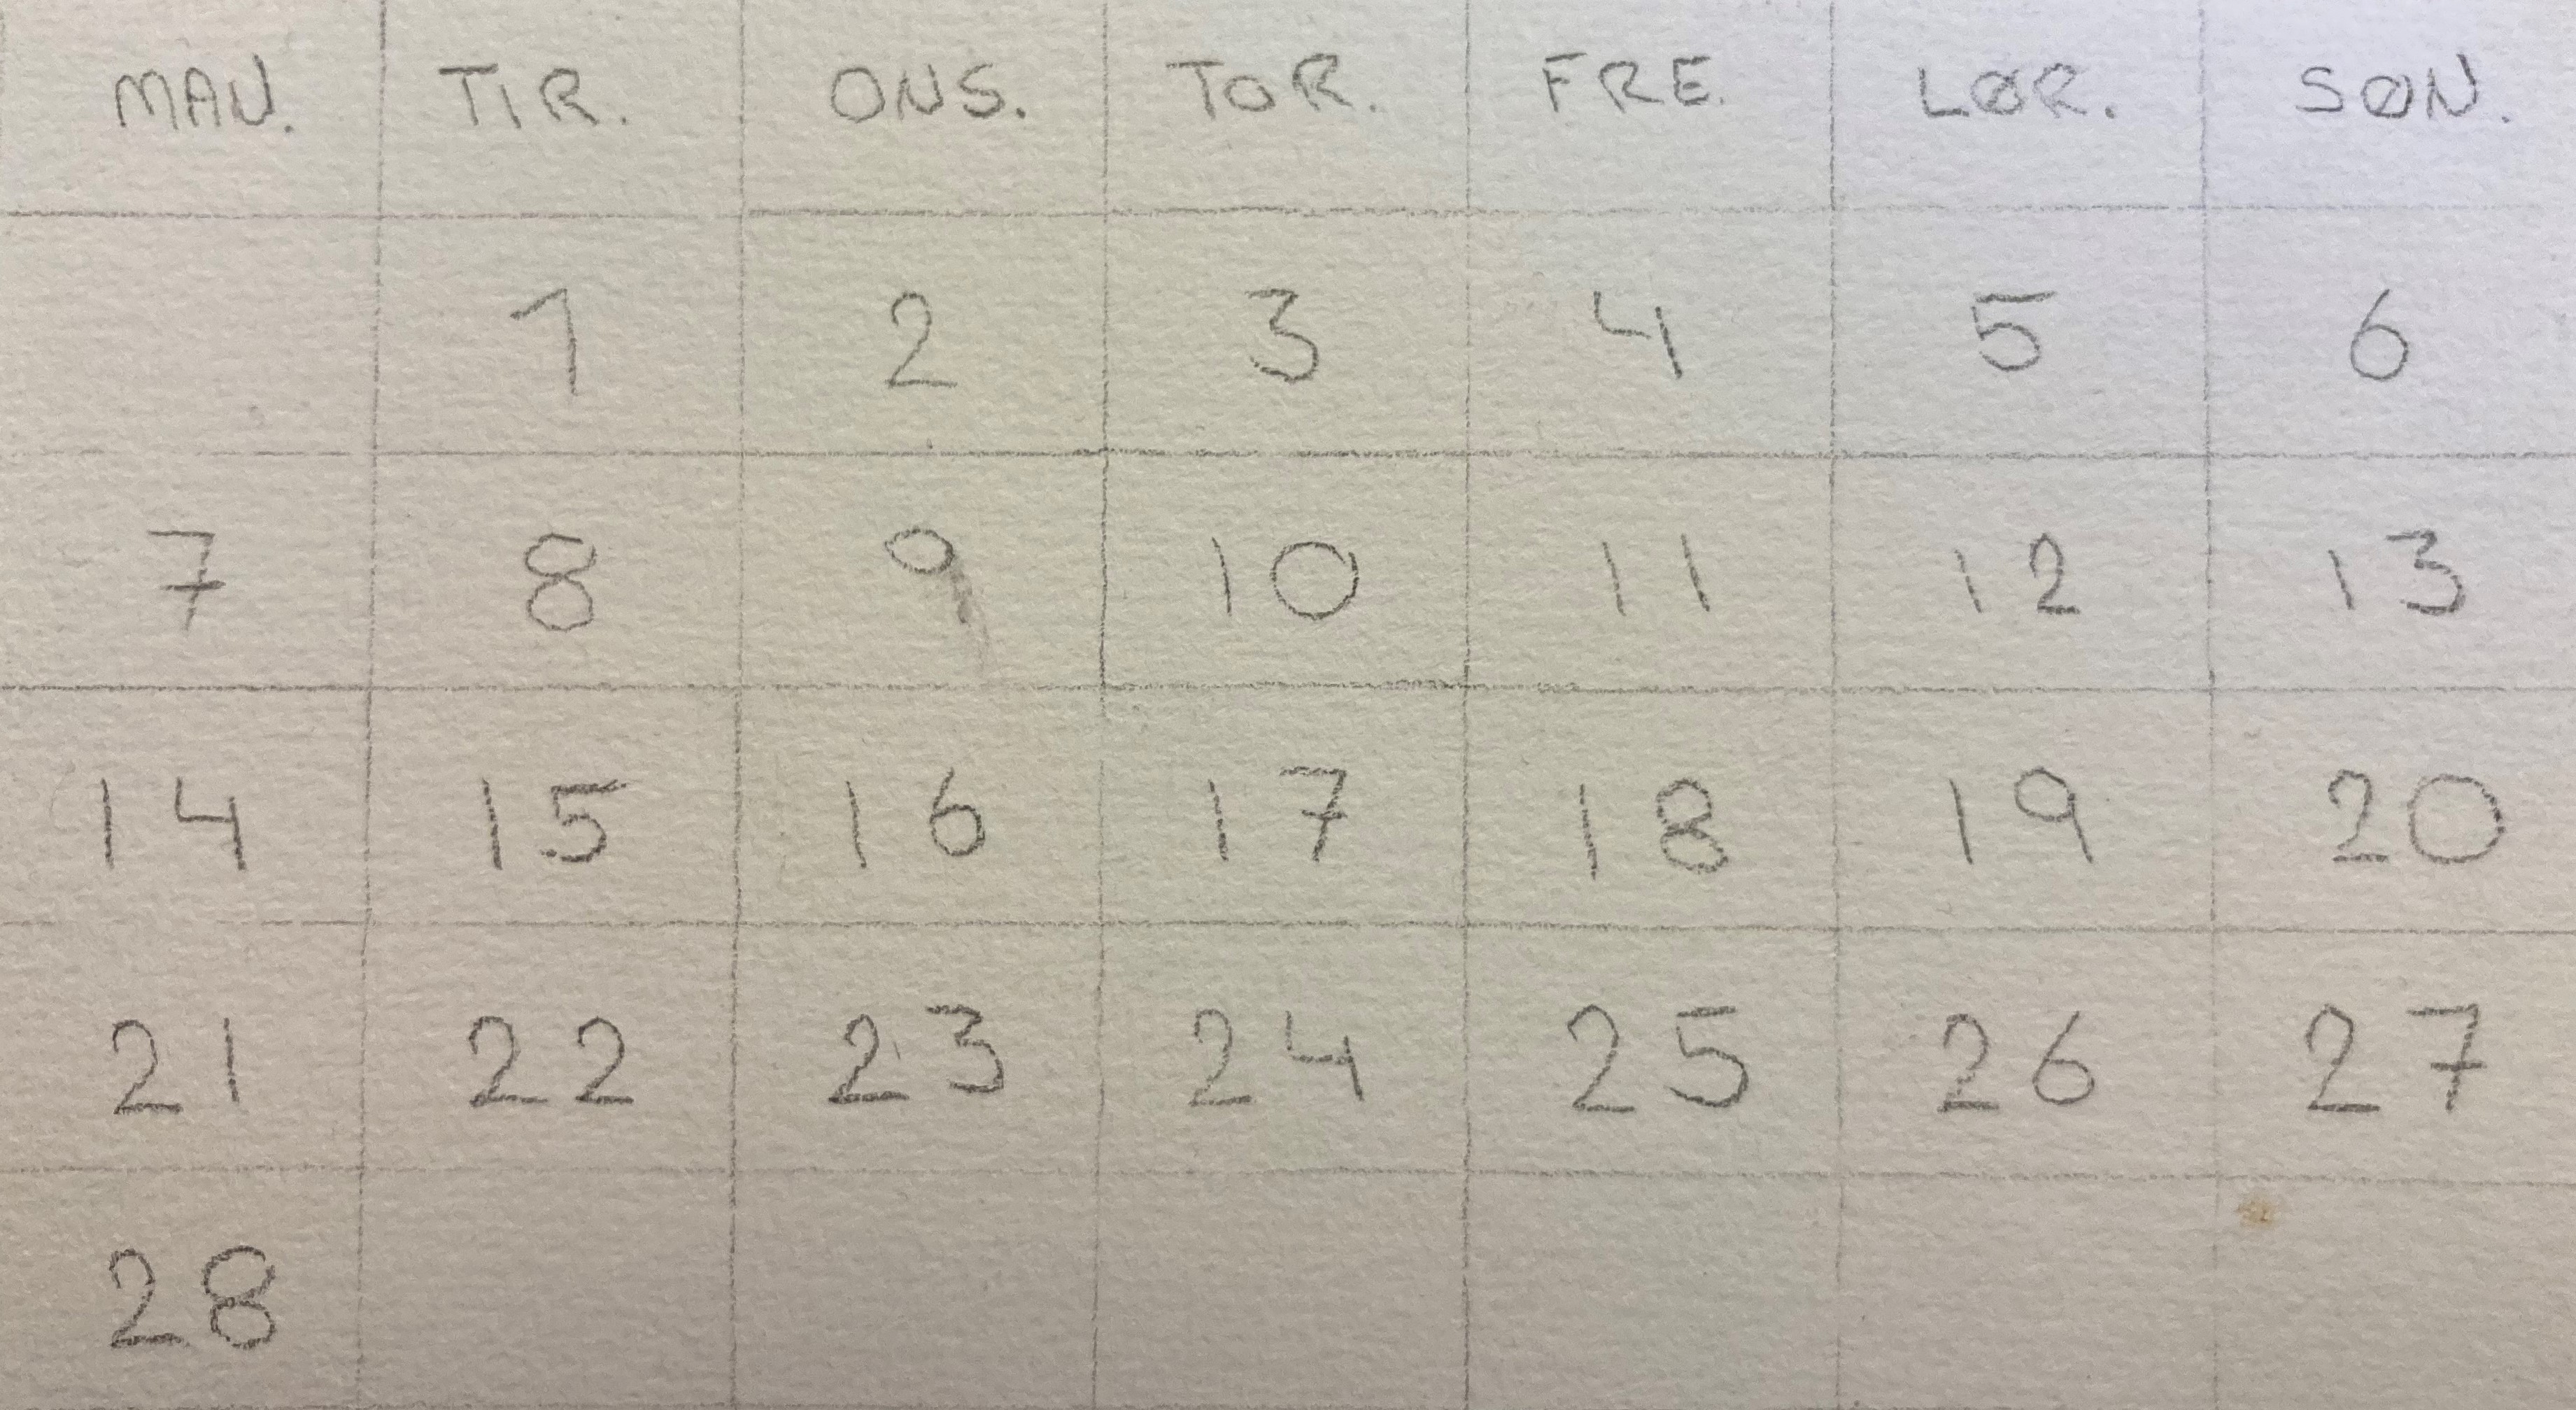 MAN. TIR. ONS. TOR. FRE. LØR. SØN.
1 2 3 4 5 6
7 8 9 10 11 12 13
14 15 16 17 18 19 20
21 22 23 24 25 26 27
28